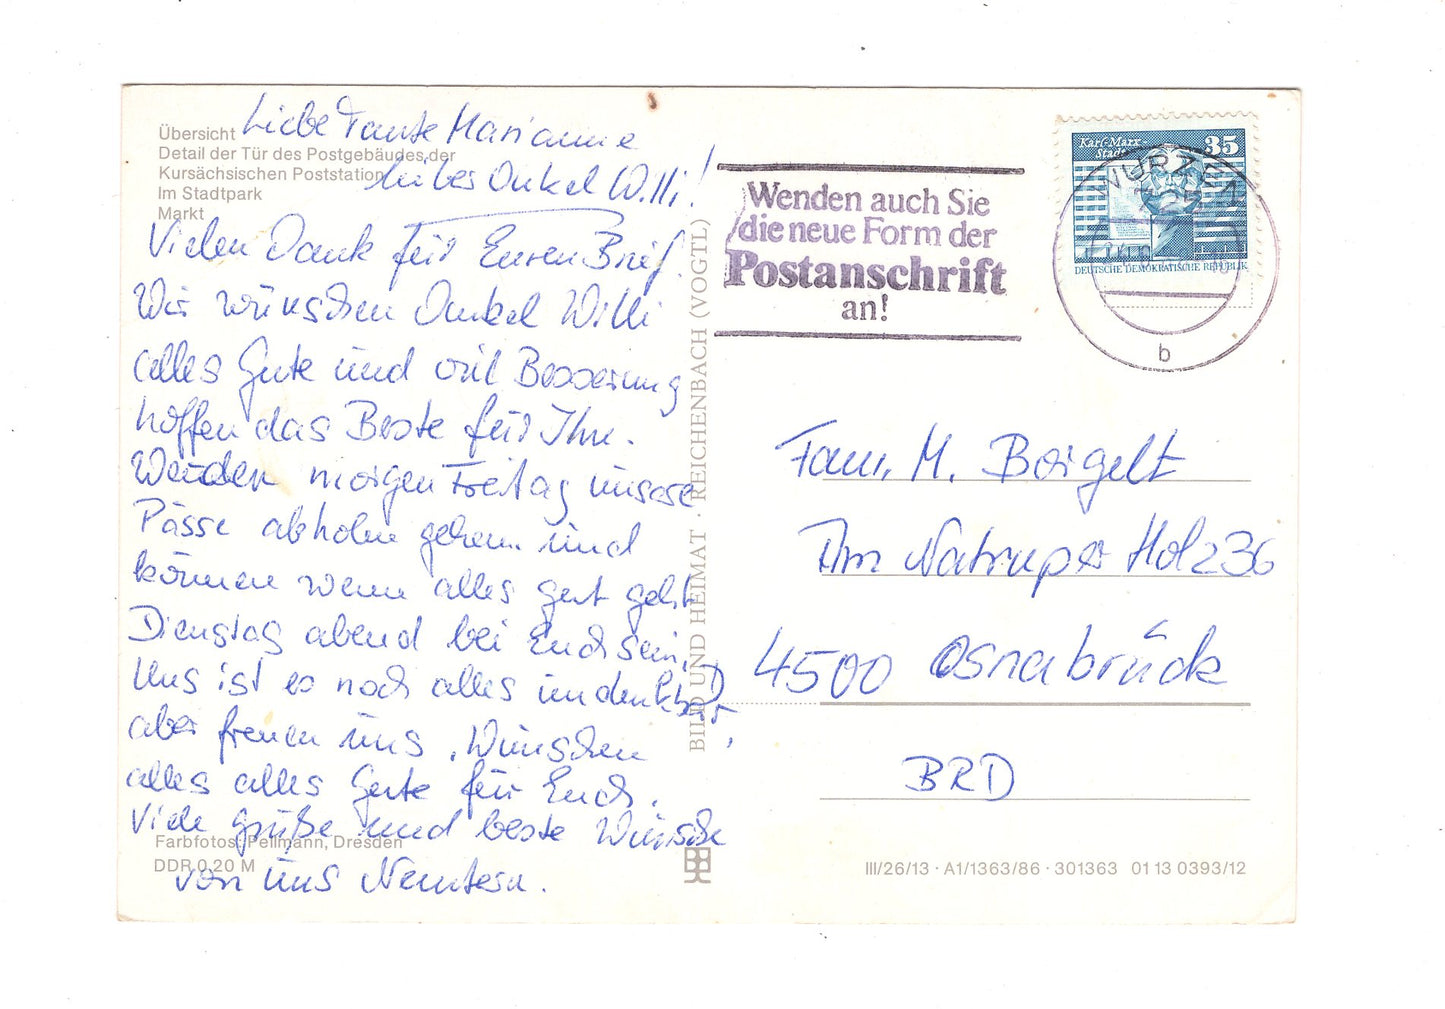 Übersicht
Detail der Tür des Postgebäudes der
Kursächsischen Poststation
Im Stadtpark
Markt
Liebe Tante Marianne
lieber Onkel Willi!
Vielen Dank für Euren Brief.
Wir wünschen Onkel Willi
alles Gute und viel Besserung
hoffen das Beste für Ihn.
Werden morgen Freitag unsere
Pässe abholen gehen und
können wenn alles gut geht
Dienstag abend bei Euch sein.
Uns ist es noch alles undenkbar,
aber freuen uns. Wünschen
alles alles Gute für Euch.
Viele grüße und beste Wünsche
von uns
Farbfotos: Pellmann, Dresden
DDR 0,20 M
BILD UND HEIMAT · REICHENBACH (VOGTL)
Wenden auch Sie
die neue Form der
Postanschrift
an!
Karl-Marx-
Stadt
35
DEUTSCHE DEMOKRATISCHE REPUBLIK
WURZEN 1
b
Fam. M. Borgelt
Am Natruper Holz 36
4500 Osnabrück
BRD
III/26/13 · A1/1363/86 · 301363 01 13 0393/12